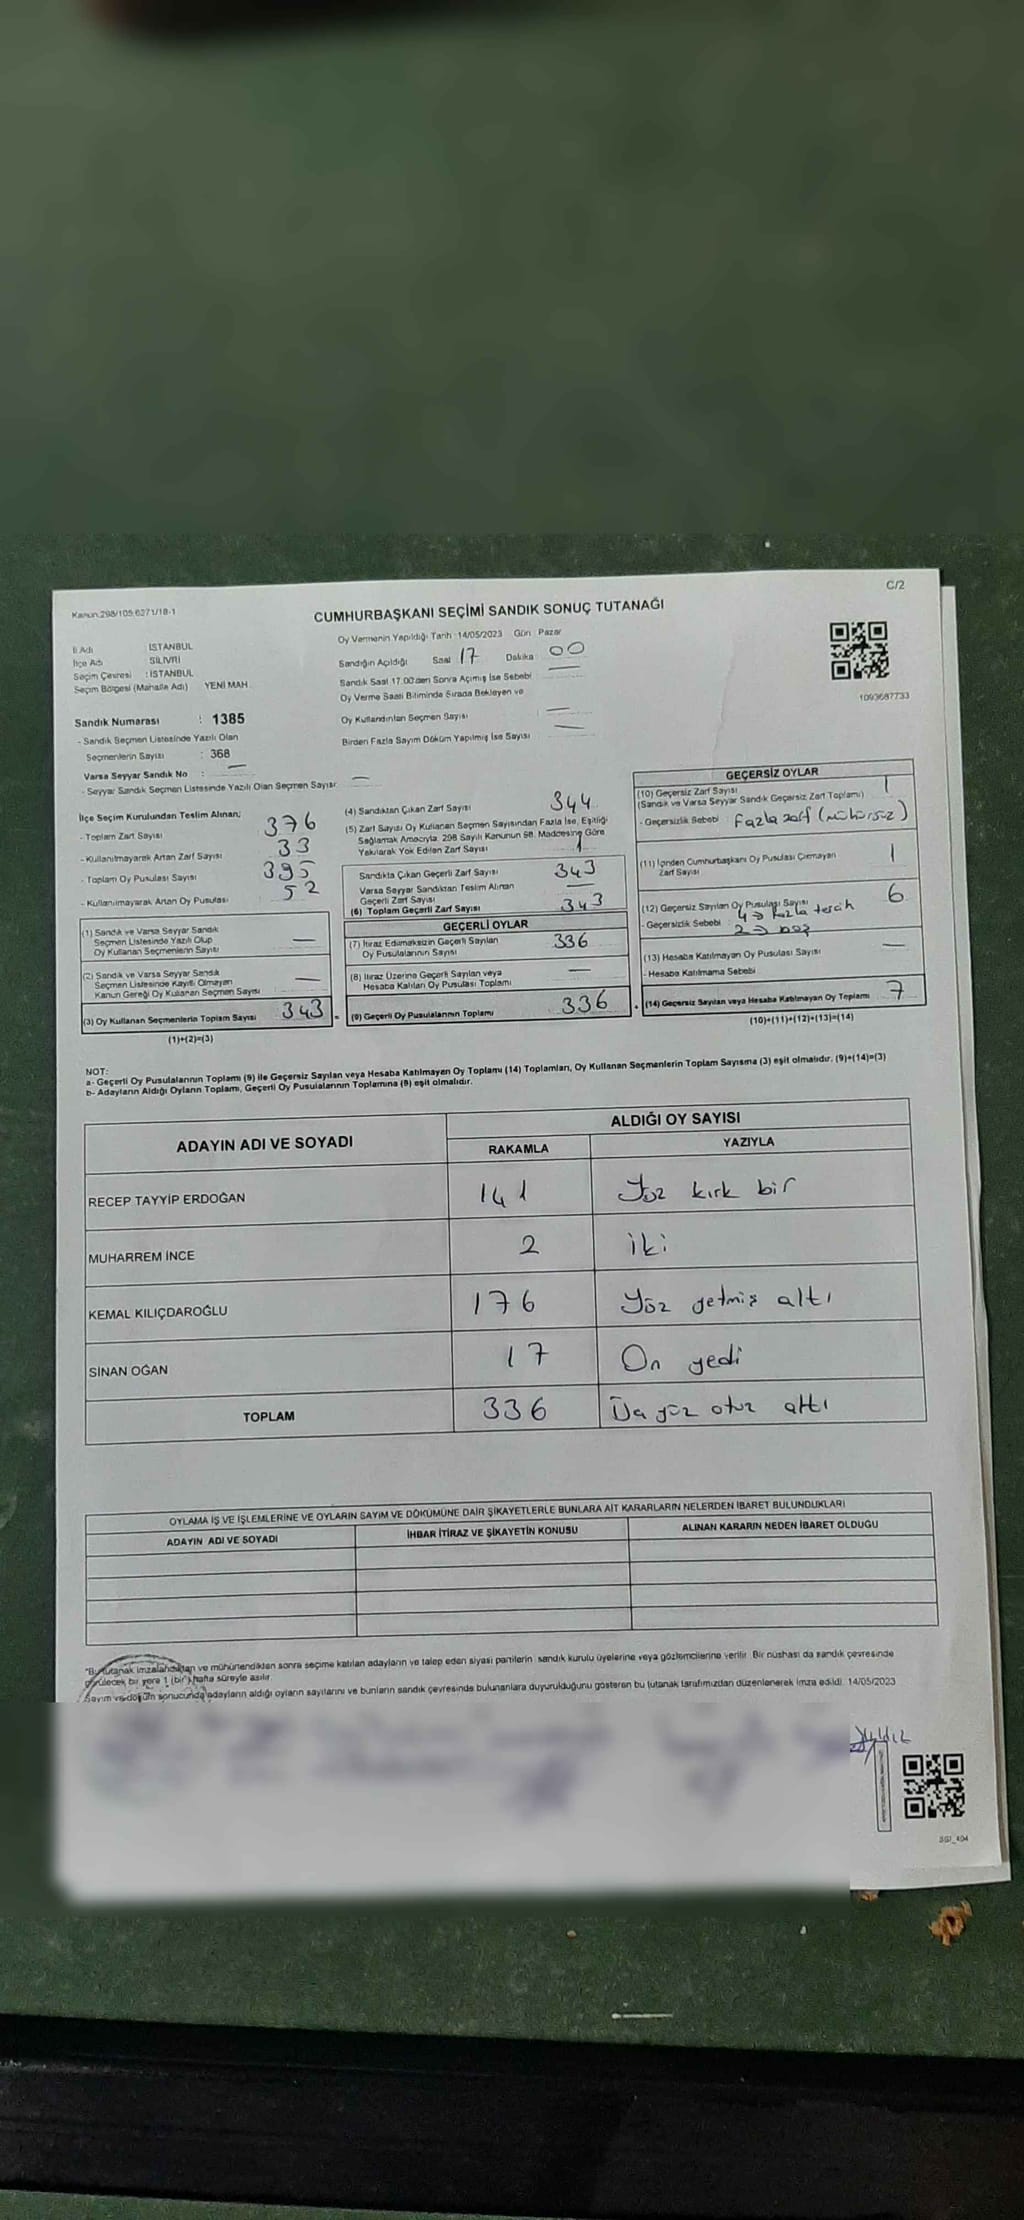 C/2
Kanun:298/105,6271/18-1
CUMHURBAŞKANI SEÇİMİ SANDIK SONUÇ TUTANAĞI
İl Adı İSTANBUL
İlçe Adı SİLİVRİ
Seçim Çevresi : İSTANBUL
Seçim Bölgesi (Mahalle Adı) YENİ MAH.
Oy Vermenin Yapıldığı Tarih :14/05/2023 Gün : Pazar
Sandığın Açıldığı Saat 17 Dakika 00
Sandık Saat 17.00'den Sonra Açımış İse Sebebi —
Oy Verme Saati Bitiminde Sırada Bekleyen ve
Oy Kullandırılan Seçmen Sayısı : —
Birden Fazla Sayım Döküm Yapılmış İse Sayısı —
1093687733
Sandık Numarası : 1385
- Sandık Seçmen Listesinde Yazılı Olan
Seçmenlerin Sayısı : 368
Varsa Seyyar Sandık No : —
- Seyyar Sandık Seçmen Listesinde Yazılı Olan Seçmen Sayısı —
İlçe Seçim Kurulundan Teslim Alınan;
- Toplam Zarf Sayısı 376
- Kullanılmayarak Artan Zarf Sayısı 33
- Toplam Oy Pusulası Sayısı 395
- Kullanılmayarak Artan Oy Pusulası 52
(1) Sandık ve Varsa Seyyar Sandık
Seçmen Listesinde Yazılı Olup
Oy Kullanan Seçmenlerin Sayısı —
(2) Sandık ve Varsa Seyyar Sandık
Seçmen Listesinde Kayıtlı Olmayan
Kanun Gereği Oy Kullanan Seçmen Sayısı —
(3) Oy Kullanan Seçmenlerin Toplam Sayısı 343
(1)+(2)=(3)
(4) Sandıktan Çıkan Zarf Sayısı 344
(5) Zarf Sayısı Oy Kullanan Seçmen Sayısından Fazla İse, Eşitliği
Sağlamak Amacıyla 298 Sayılı Kanunun 98. Maddesine Göre
Yakılarak Yok Edilen Zarf Sayısı 1
Sandıkta Çıkan Geçerli Zarf Sayısı 343
Varsa Seyyar Sandıktan Teslim Alınan
Geçerli Zarf Sayısı —
(6) Toplam Geçerli Zarf Sayısı 343
GEÇERLİ OYLAR
(7) İtiraz Edilmeksizin Geçerli Sayılan
Oy Pusulalarının Sayısı 336
(8) İtiraz Üzerine Geçerli Sayılan veya
Hesaba Katılan Oy Pusulası Toplamı —
(9) Geçerli Oy Pusulalarının Toplamı 336
GEÇERSİZ OYLAR
(10) Geçersiz Zarf Sayısı 1
(Sandık ve Varsa Seyyar Sandık Geçersiz Zarf Toplamı)
- Geçersizlik Sebebi Fazla zarf (mühürsüz)
(11) İçinden Cumhurbaşkanı Oy Pusulası Çıkmayan
Zarf Sayısı 1
(12) Geçersiz Sayılan Oy Pusulası Sayısı 6
- Geçersizlik Sebebi 4 → fazla tercih
2 → boş
(13) Hesaba Katılmayan Oy Pusulası Sayısı —
- Hesaba Katılmama Sebebi
(14) Geçersiz Sayılan veya Hesaba Katılmayan Oy Toplamı 7
(10)+(11)+(12)+(13)=(14)
NOT:
a- Geçerli Oy Pusulalarının Toplamı (9) ile Geçersiz Sayılan veya Hesaba Katılmayan Oy Toplamı (14) Toplamları, Oy Kullanan Seçmenlerin Toplam Sayısına (3) eşit olmalıdır. (9)+(14)=(3)
b- Adayların Aldığı Oyların Toplamı, Geçerli Oy Pusulalarının Toplamına (9) eşit olmalıdır.
ADAYIN ADI VE SOYADI ALDIĞI OY SAYISI
RAKAMLA YAZIYLA
RECEP TAYYİP ERDOĞAN 141 Yüz kırk bir
MUHARREM İNCE 2 iki
KEMAL KILIÇDAROĞLU 176 Yüz yetmiş altı
SİNAN OĞAN 17 On yedi
TOPLAM 336 Üç yüz otuz altı
OYLAMA İŞ VE İŞLEMLERİNE VE OYLARIN SAYIM VE DÖKÜMÜNE DAİR ŞİKAYETLERLE BUNLARA AİT KARARLARIN NELERDEN İBARET BULUNDUKLARI
ADAYIN ADI VE SOYADI İHBAR İTİRAZ VE ŞİKAYETİN KONUSU ALINAN KARARIN NEDEN İBARET OLDUĞU
*Bu tutanak imzalandıktan ve mühürlendikten sonra seçime katılan adayların ve talep eden siyasi partilerin sandık kurulu üyelerine veya gözlemcilerine verilir. Bir nüshası da sandık çevresinde
görülecek bir yere 1 (bir) hafta süreyle asılır.
Sayım ve döküm sonucunda adayların aldığı oyların sayılarını ve bunların sandık çevresinde bulunanlara duyurulduğunu gösteren bu tutanak tarafımızdan düzenlenerek imza edildi. 14/05/2023